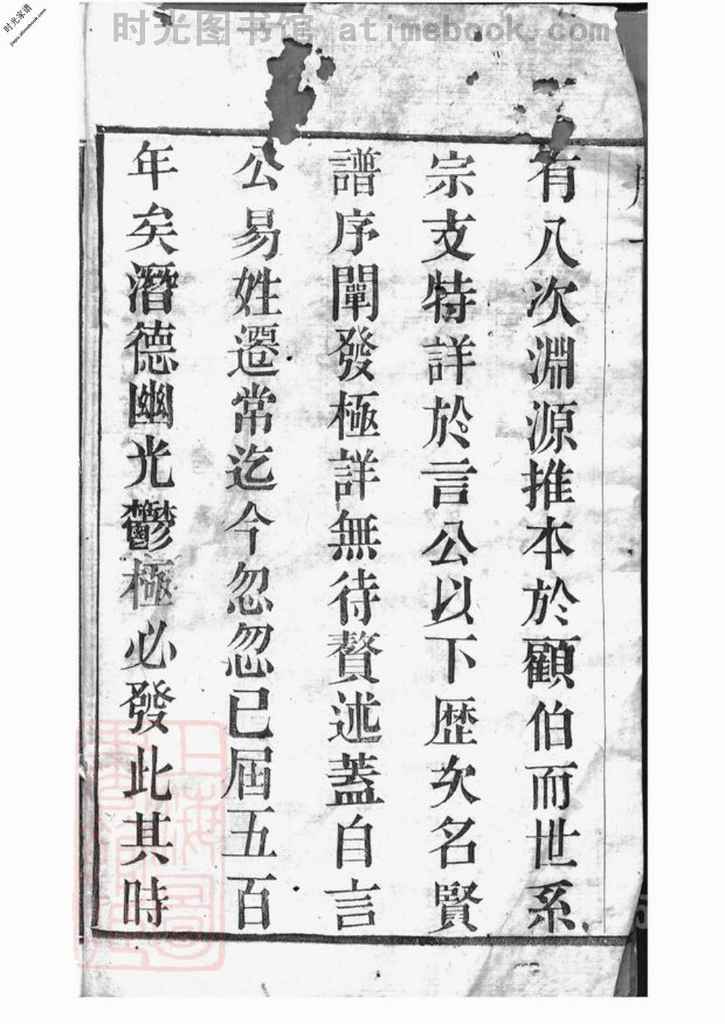 时光图书馆 atimebook.com
时光家谱
有八次淵源推本於顧伯而世系
宗支特詳於言公以下歷次名賢
譜序闡發極詳無待贅述蓋自言
公易姓遷常迄今忽忽已屆五百
年矣潛德幽光鬱極必發此其時